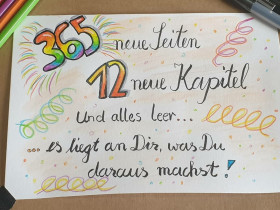 365 neue Seiten
12 neue Kapitel
Und alles leer...
... es liegt an Dir, was Du
daraus machst!